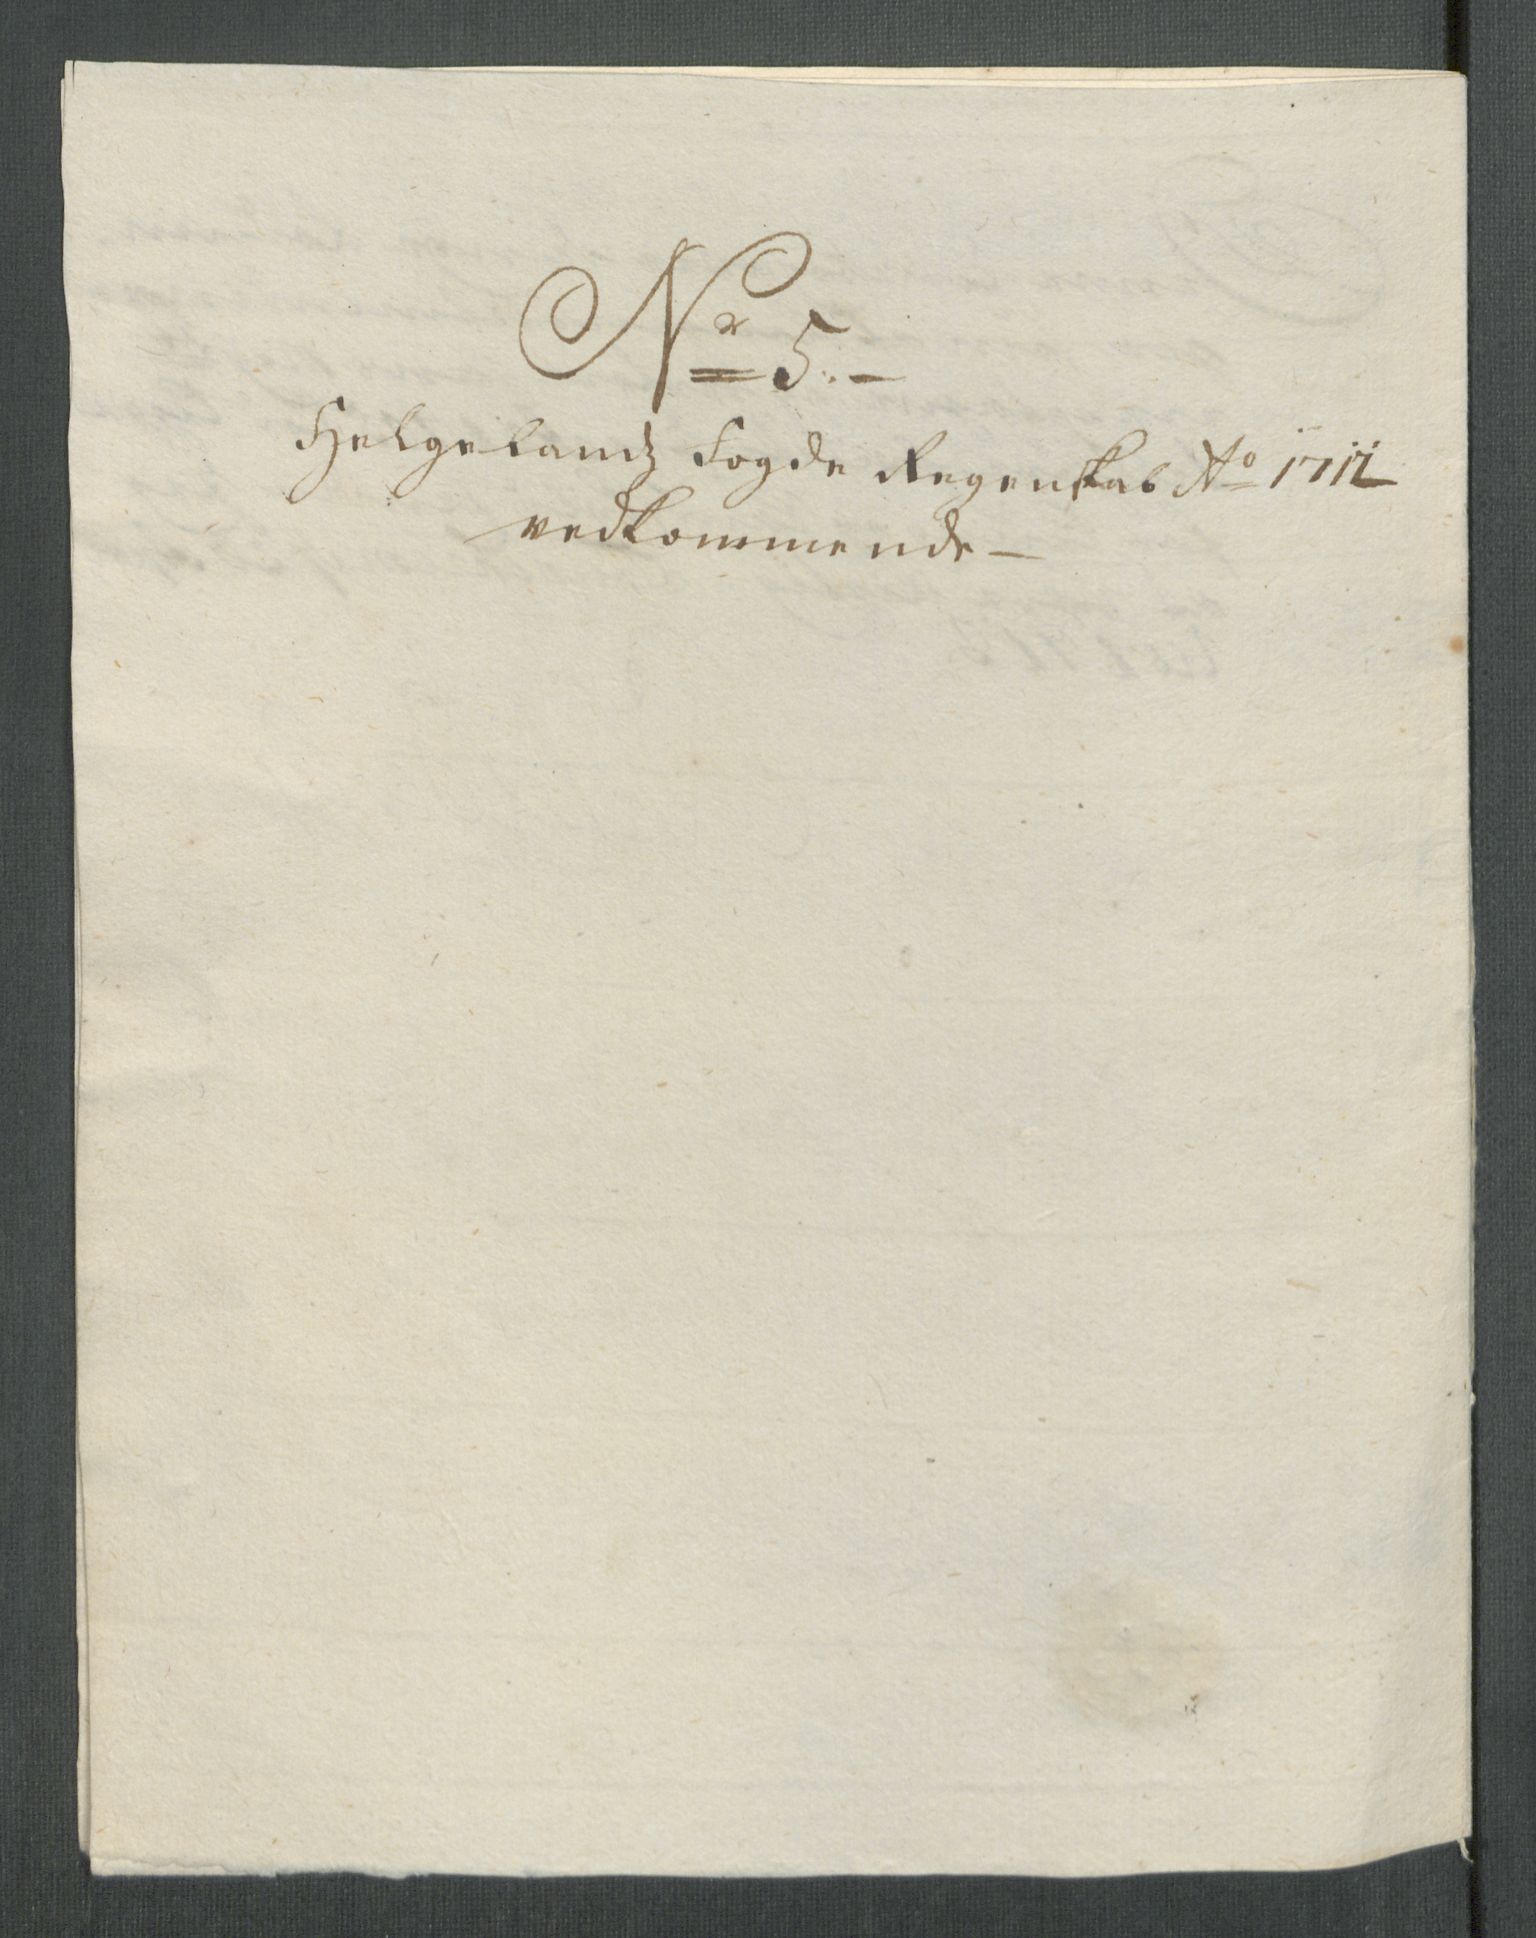 Nr 5. –
Helgelandz Fogde Regenskab Ao 1712
vedkommende –